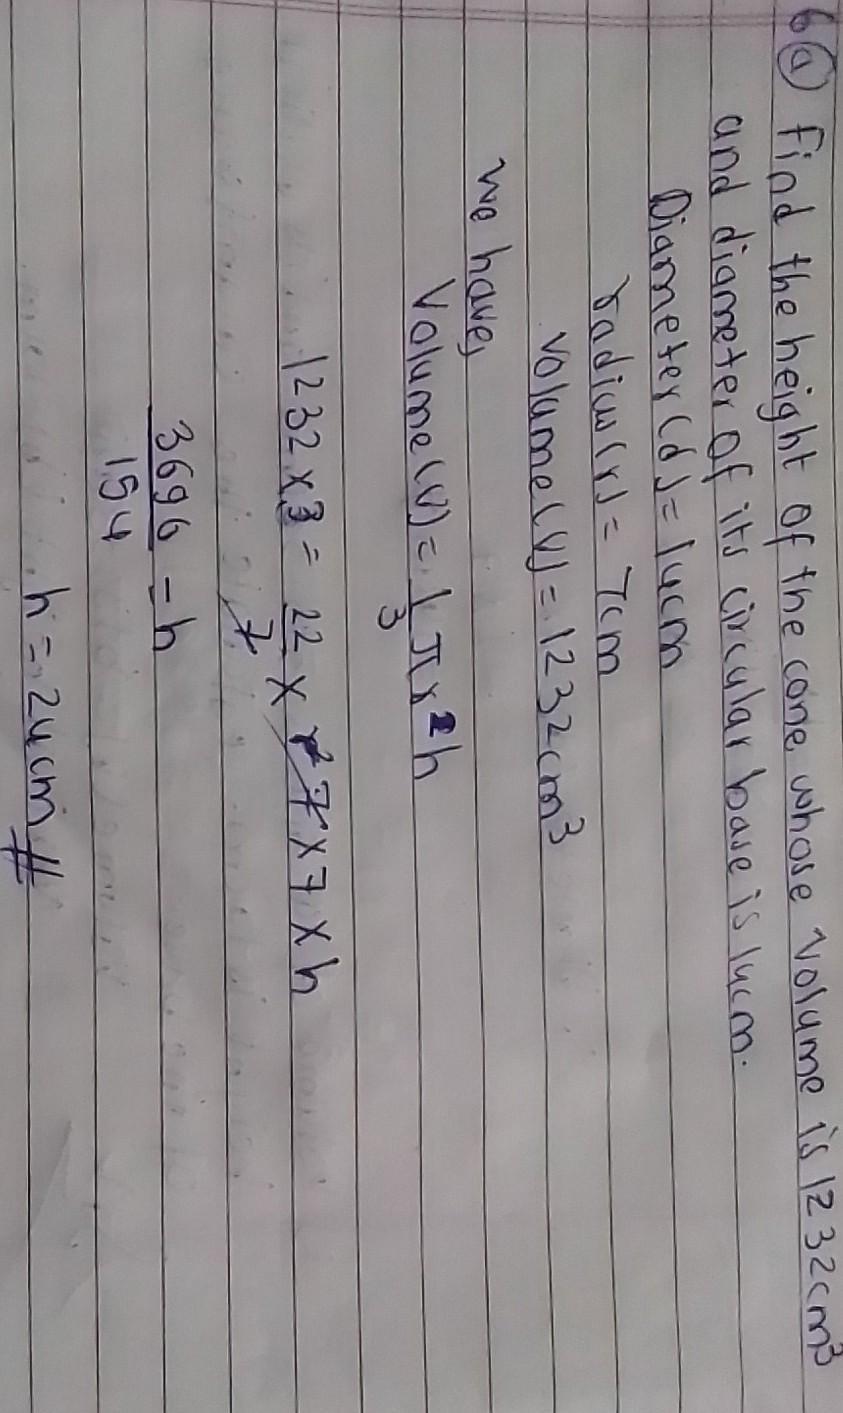 6 (a) Find the height of the cone whose volume is 1232cm³
and diameter of its circular base is 14cm.
Diameter(d) = 14cm
radius(r) = 7cm
volume(v) = 1232cm³
We have,
Volume(v) = 1/3 πr²h
1232 x 3 = 22/7 x 7 x 7 x h
3696/154 = h
h = 24cm #